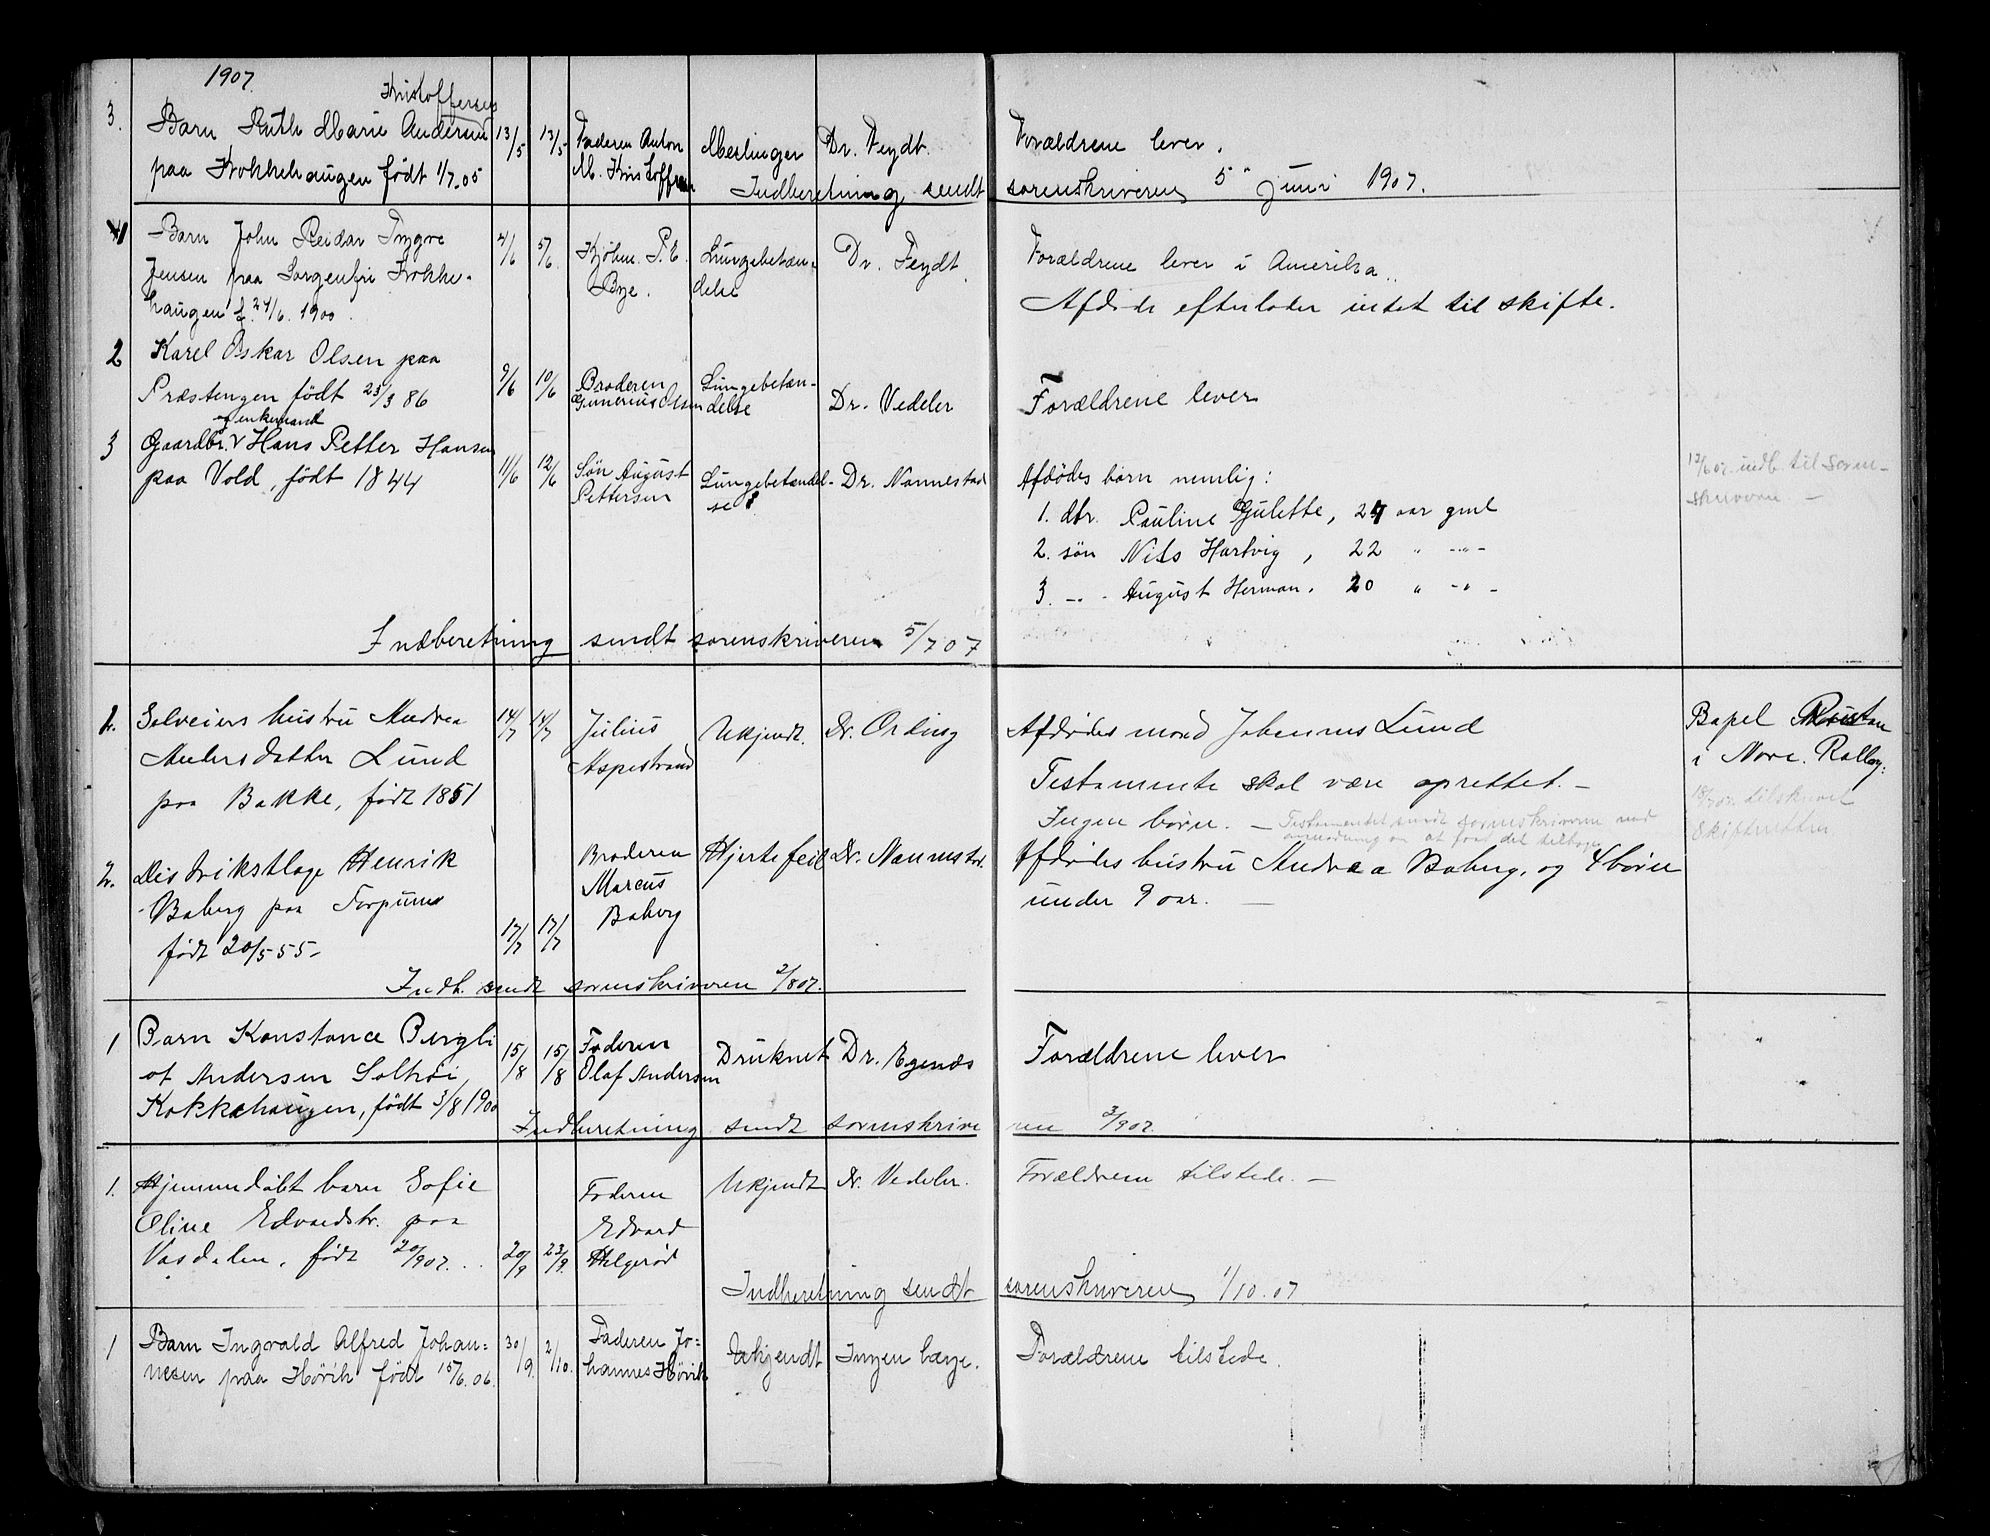 1907.
Kristoffersen
3. Barn Ruth Marie Andersen 13/5 13/5 Faderen Anton Meslinger Dr. Feydt. Forældrene lever.
paa Krokkehaugen født 1/7.05 M. Kristoffersen
Indberetning sendt sorenskriveren 5" juni 1907.
1 Barn John Reidar Trygve 4/6 5/6 Kjøbm. P.E. Lungebetæn- Dr. Feydt. Forældrene lever i Amerika.
Jensen paa Sorgenfri Krokke- Bye. delse
haugen f. 24/6. 1900. Afdøde efterlader intet til skifte.
2 Karel Oskar Olsen paa 9/6 10/6 Broderen Lungebetæn-
Præstengen født 23/3 86 Gunerius Olsen delse Dr. Vedeler Forældrene lever
og enkemand
3 Gaardbr. v Hans Petter Hansen 11/6 12/6 Søn August Lungebetændel- Dr. Nannestad Afdødes børn nemlig: 12/6 07. indb. til soren-
paa Vold, født 1844 Pettersen se skriveren. -
1. dtr. Pauline Gulette, 24 aar gml
2. søn Nils Hartvig, 22 " -"-
3. -"- August Herman. 20 " -"-
Indberetning sendt sorenskriveren 5/7 07
1. Selveiers hustru Andrea 14/7 14/7 Julius Ukjendt. Dr. Ording Afdødes mand Johannes Lund
Andersdatter Lund Aspestrand Testamente skal være oprettet. - i
paa Bakke, født 1851 Ingen børn. - Testamentet sendt sorenskriveren med 18/7 07. tilskrevet
anmodning om at faa det tilbage skifteretten
2. Distriktslæge Henrik 17/7 17/7 Broderen Hjertefeil Dr. Nannestad. Afdødes hustru Andrea Boberg, og 4 børn
Boberg paa Torpum Marcus under 9 aar. -
født 20/5 55- Boberg
Indb. sendt sorenskriveren 2/8 07.
1 Barn Konstance Bergli 15/8 15/8 Faderen Druknet Dr. Egenæs Forældrene lever
at Andersen Soltrøi, Olaf Andersen
Kokkehaugen, født 3/8 1900
Indberetning sendt sorenskrive ren 3/9 07.
1. Hjemmedøbt barn Sofie 20/9 23/9. Faderen Ukjendt Dr. Vedeler. Forældrene tilstede. -
Oline Edvardstr. paa Edvard
Vasdalen, født 20/9 07. Helgerød
Indberetning sendt sorenskriveren 1/10.07
1 Barn Ingvald Alfred Johan- 30/9. 2/10. Faderen Jo- Ukjendt Ingen læge. Forældrene tilstede.
nesen paa Hørik født 15/6.06. hannes Hørik